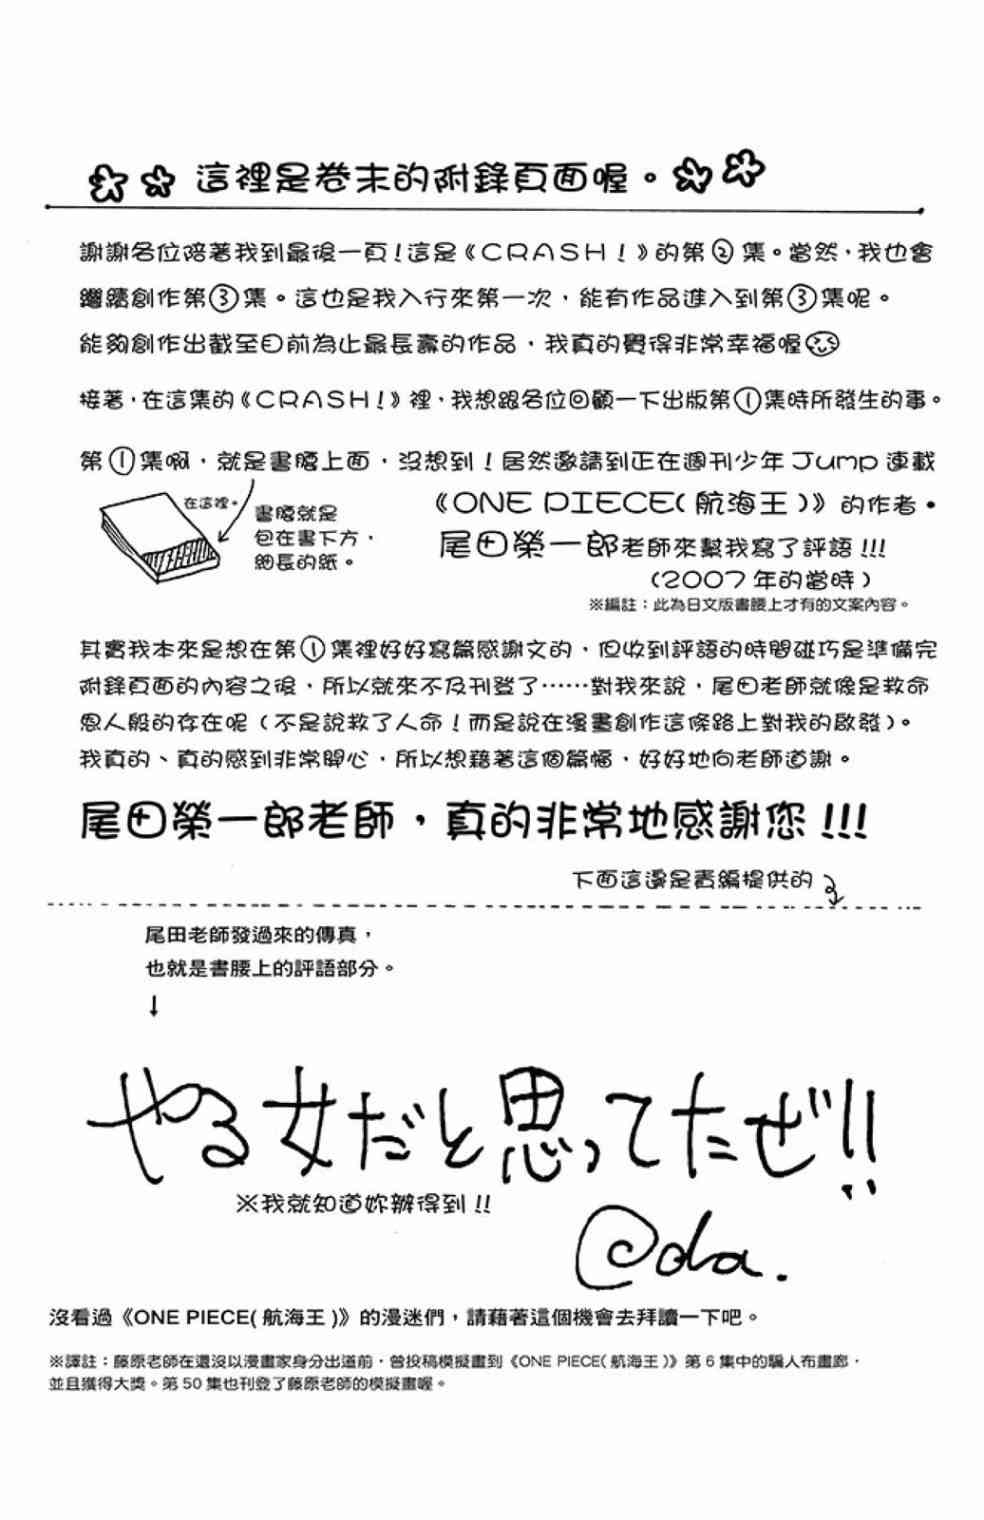 這裡是卷末的附錄頁面喔。
謝謝各位陪著我到最後一頁!這是《CRASH!》的第②集。當然,我也會
繼續創作第③集。這也是我入行來第一次,能有作品進入到第③集呢。
能夠創作出截至目前為止最長壽的作品,我真的覺得非常幸福喔
接著,在這集的《CRASH!》裡,我想跟各位回顧一下出版第①集時所發生的事。
第①集啊,就是書腰上面,沒想到!居然邀請到正在週刊少年Jump連載
《ONE PIECE(航海王)》的作者。
尾田榮一郎老師來幫我寫了評語!!!
(2007年的當時)
※編註:此為日文版書腰上才有的文案內容。
在這裡。
書腰就是
包在書下方,
細長的紙。
其實我本來是想在第①集裡好好寫篇感謝文的,但收到評語的時間碰巧是準備完
附錄頁面的內容之後,所以就來不及刊登了……對我來說,尾田老師就像是救命
恩人般的存在呢(不是說救了人命!而是說在漫畫創作這條路上對我的啟發)。
我真的、真的感到非常開心,所以想藉著這個篇幅,好好地向老師道謝。
尾田榮一郎老師,真的非常地感謝您!!!
下面這邊是責編提供的
尾田老師發過來的傳真,
也就是書腰上的評語部分。
↓
やる女だと思ってたぜ!!
※我就知道妳辦得到!!
@da.
沒看過《ONE PIECE(航海王)》的漫迷們,請藉著這個機會去拜讀一下吧。
※譯註:藤原老師在還沒以漫畫家身分出道前,曾投稿模擬畫到《ONE PIECE(航海王)》第6集中的騙人布畫廊,
並且獲得大獎。第50集也刊登了藤原老師的模擬畫喔。